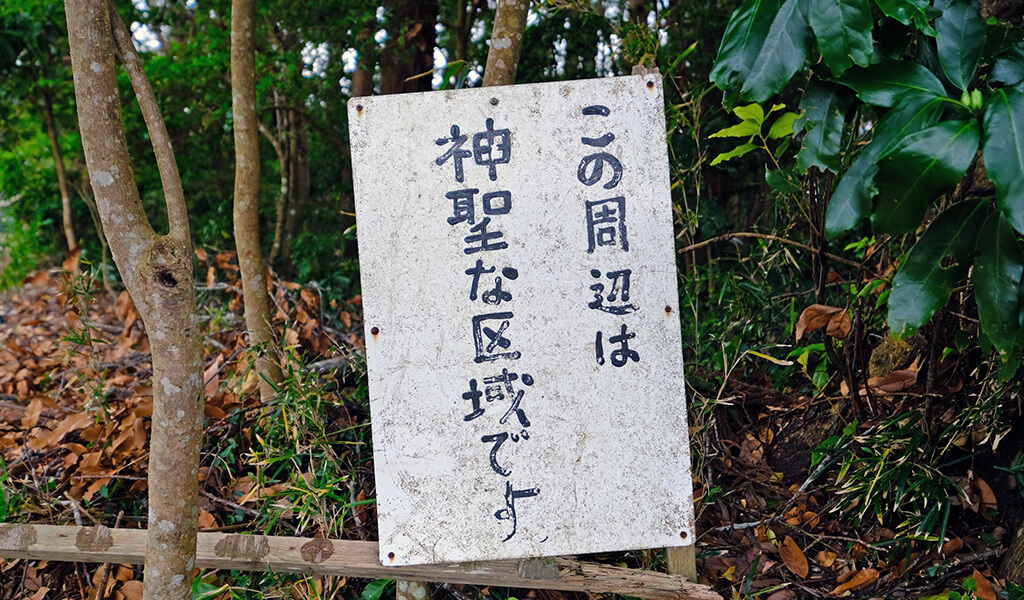 この周辺は
神聖な区域です